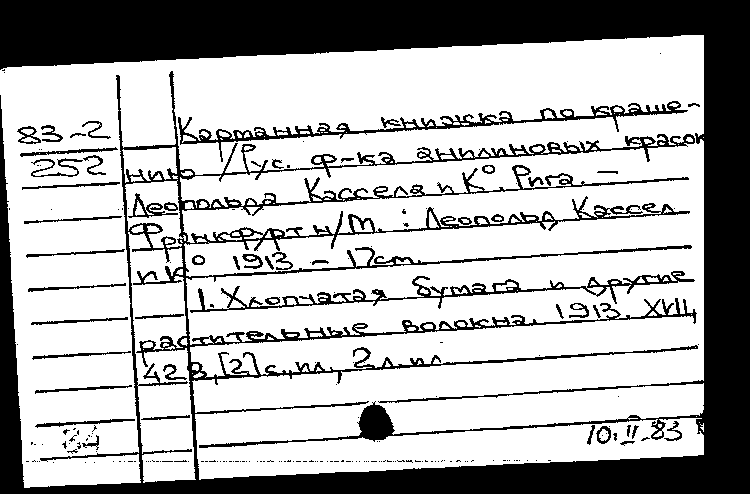 83-2 Карманная книжка по краше-
252 нию /Рус. ф-ка анилиновых красок
Леопольда Касселя и К°. Рига. –
Франкфурт н/М. : Леопольд Кассел
и К°, 1913. – 17cm.
1. Хлопчатая бумага и другие
растительные волокна. 1913. XVII,
428, [2] с., ил., 2 л. ил.
34
10.II.83